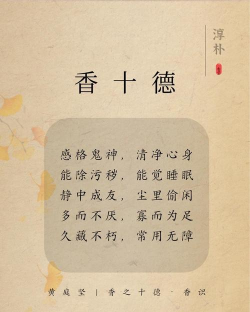 淳朴
香十德
感格鬼神，清净心身
能除污秽，能觉睡眠
静中成友，尘里偷闲
多而不厌，寡而为足
久藏不朽，常用无障
黄庭坚 | 香之十德·香识